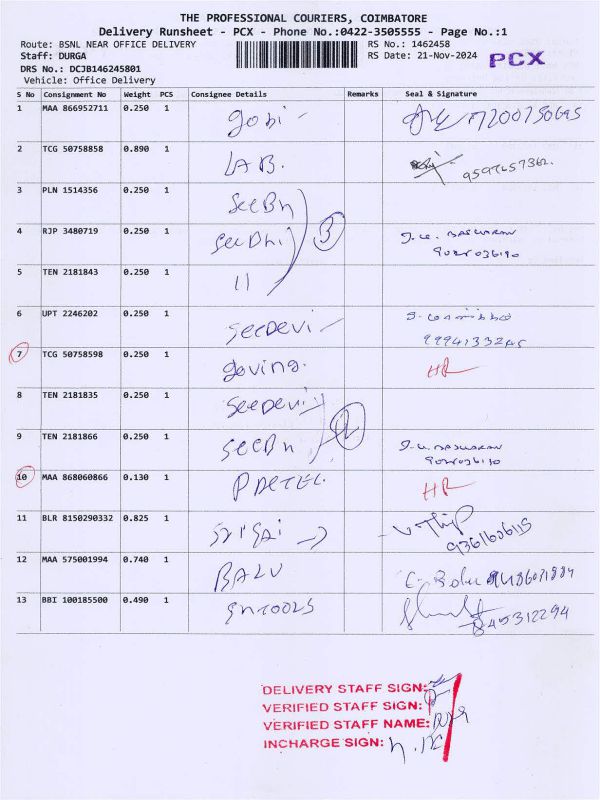 THE PROFESSIONAL COURIERS, COIMBATORE
Delivery Runsheet - PCX - Phone No.:0422-3505555 - Page No.:1
Route: BSNL NEAR OFFICE DELIVERY RS No.: 1462458
Staff: DURGA RS Date: 21-Nov-2024 PCX
DRS No.: DCJB146245801
Vehicle: Office Delivery
S No Consignment No Weight PCS Consignee Details Remarks Seal & Signature
1 MAA 866952711 0.250 1 gobi 7200750695
2 TCG 50758858 0.890 1 LAB. 9597657362.
3 PLN 1514356 0.250 1 SeeBn
4 RJP 3480719 0.250 1 SeeDhi 3
5 TEN 2181843 0.250 1 11
6 UPT 2246202 0.250 1 SeeDevi
7 TCG 50758598 0.250 1 goving. HR
8 TEN 2181835 0.250 1 SeeDevi
9 TEN 2181866 0.250 1 SeeBn 2
10 MAA 868060866 0.130 1 HR
11 BLR 8150290332 0.825 1 9361606115
12 MAA 575001994 0.740 1 BALU
13 BBI 100185500 0.490 1 845312294
DELIVERY STAFF SIGN:
VERIFIED STAFF SIGN:
VERIFIED STAFF NAME:
INCHARGE SIGN: